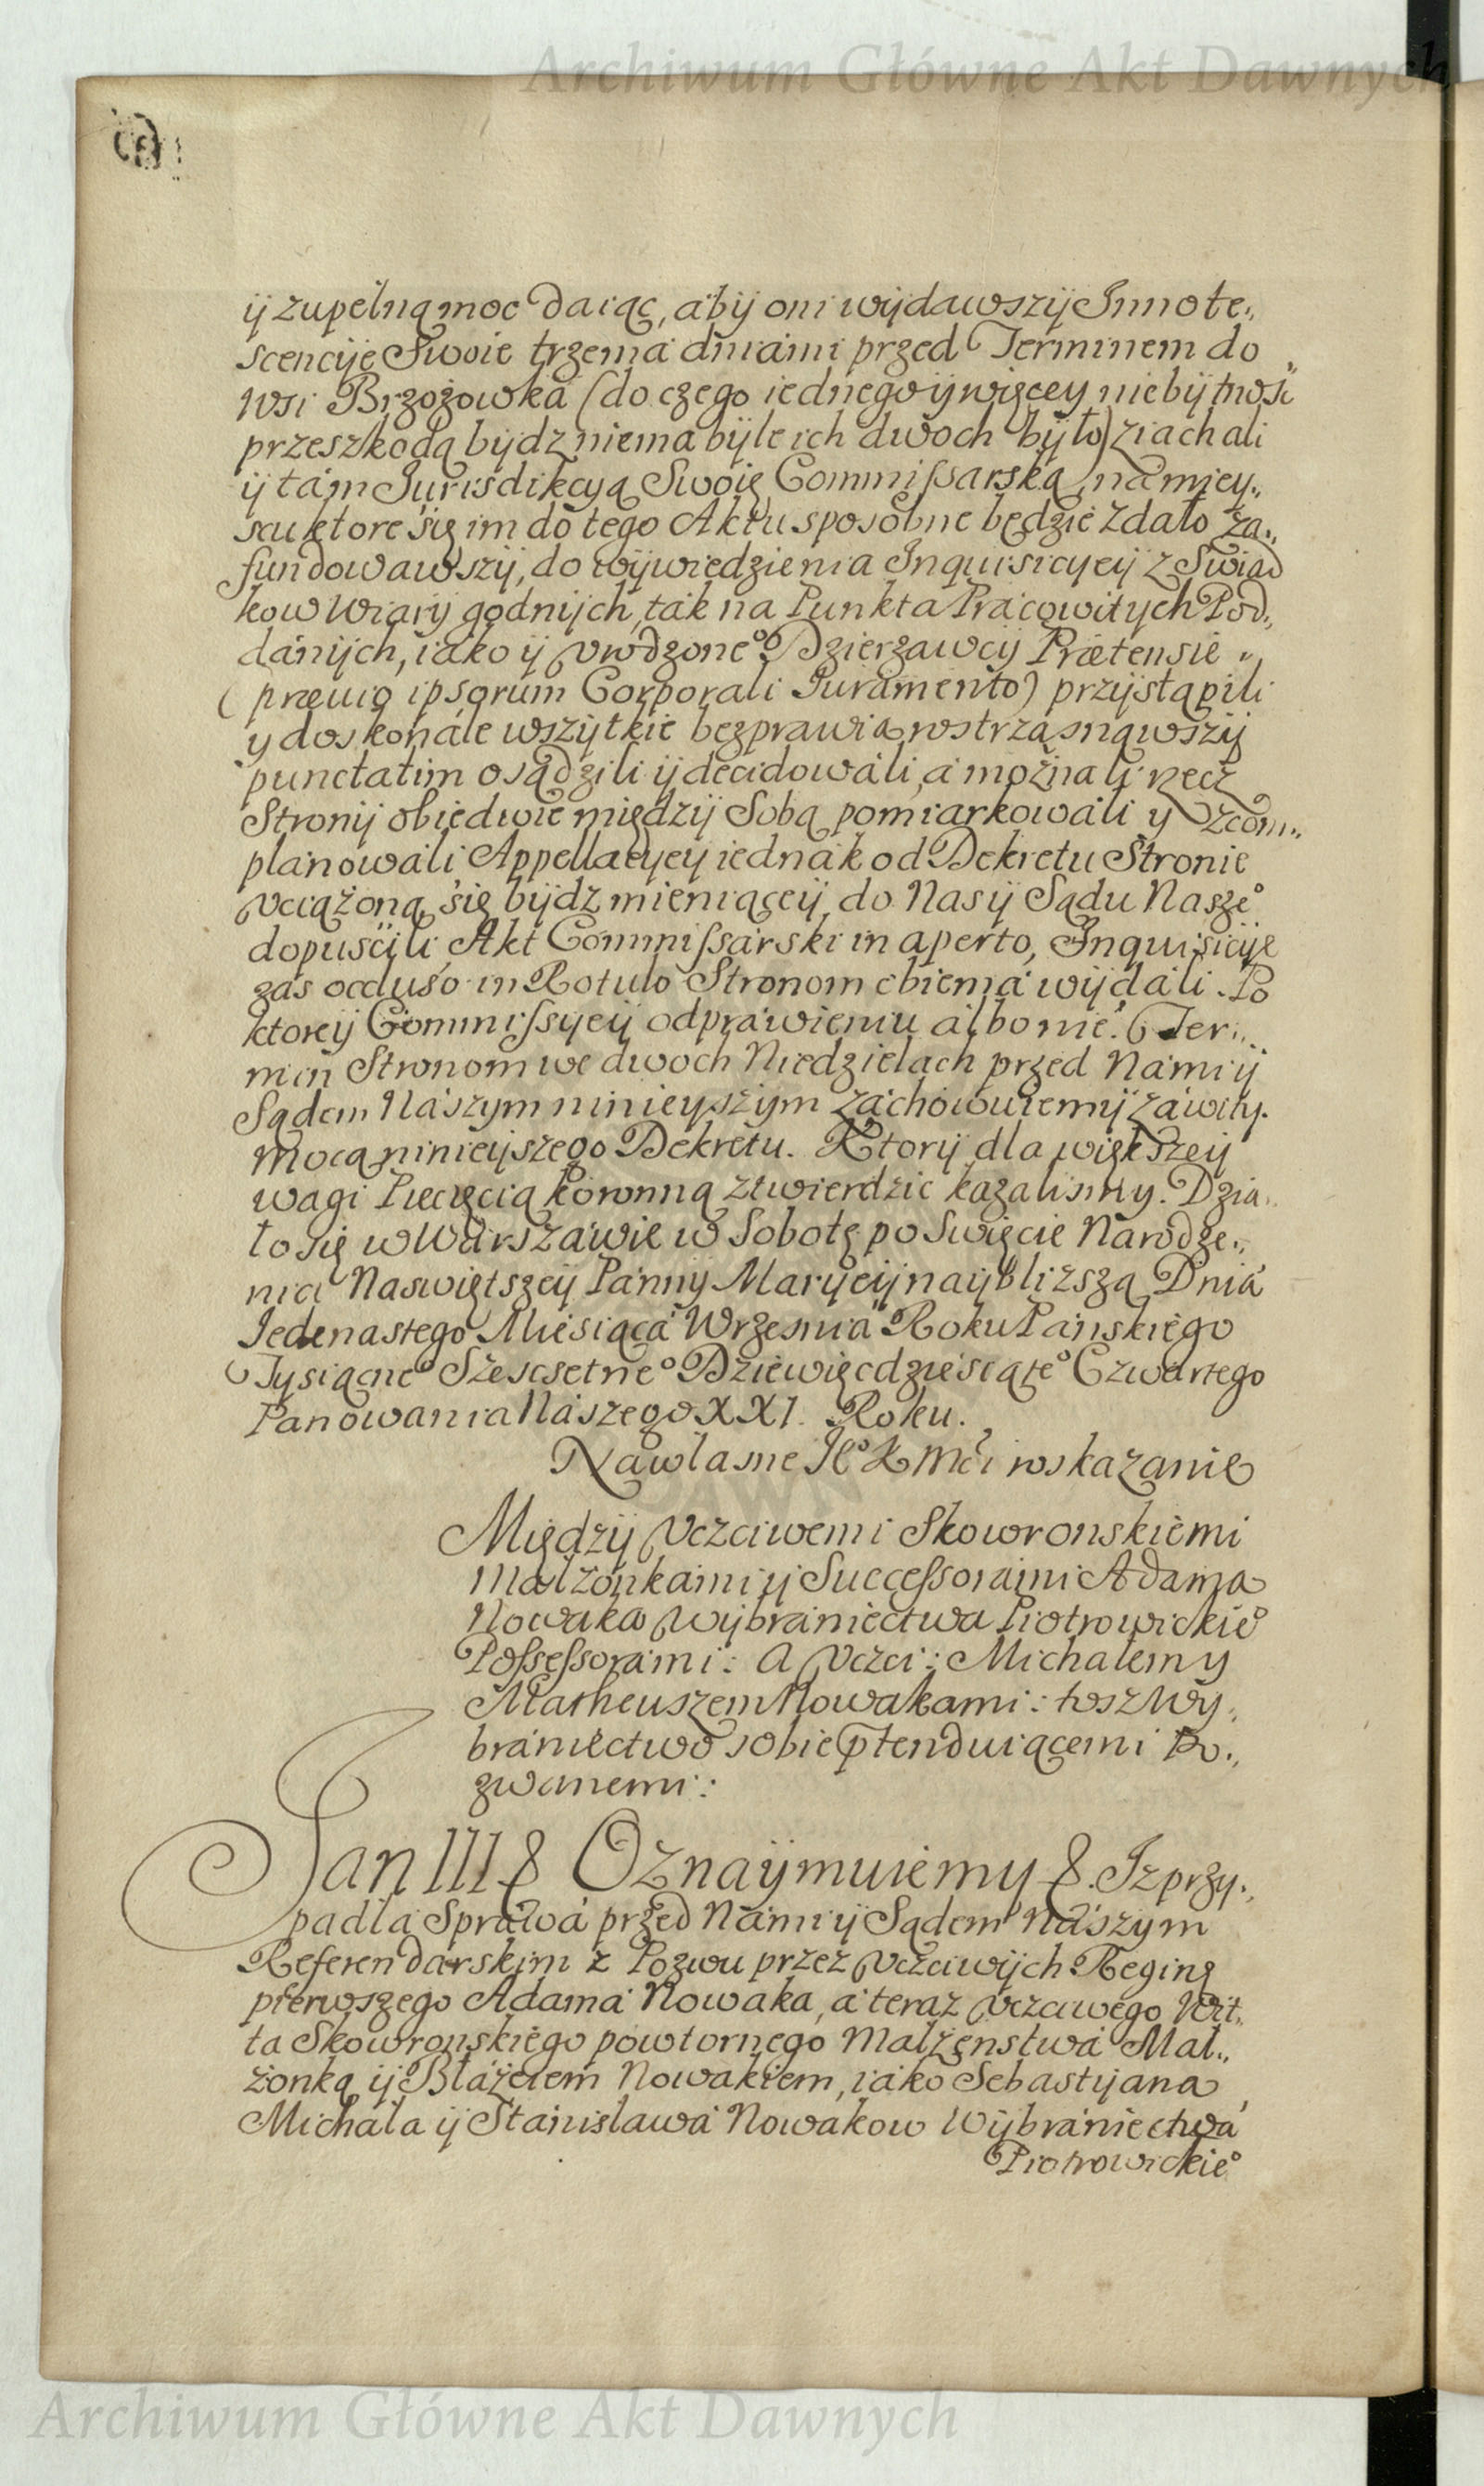 Archiwum Główne Akt Dawnych
ÿ zupełną moc daiąc, abÿ oni wÿdawszÿ Innote„
scencÿie Swoie trzema dniami przed Terminem do
wsi Brzozowka (do czego iednego ÿ więcey niebÿtnosć
przeszkodą bÿdz niema bÿle ich dwoch bÿło) ziachali
ÿ tám Jurisdikcyą Swoię Commissarską, na miey„
scu ktore się im do tego Aktu sposobne będzie zdało za„
fundowawszÿ, do wÿwiedzienia Inquisicyeÿ z Swiad
kow Wiarÿ godnÿch, ták na Punkta Pracowitych Pod„
dánÿch, iáko ÿ vrodzone° Dzierzawcÿ Prætensie „
(præuio ipsorum Corporali Juramento) przÿstąpili
y doskonále wszÿtkie bezprawia rostrząsnąwszÿ
punctatim osądzili ÿ decidowáli, á możnali rzecz
Stronÿ obiedwie międzÿ Sobą pomiarkowáli y zcom„
plánowáli Appellacÿeÿ iednák od Dekretu Stronie
vciążoną się bÿdz mieniąceÿ, do Nas ÿ Sądu Nasze°
dopuscili Akt Commissárski in aperto, Inquisicÿe
zás occluso in Rotulo Stronom obiema wÿdáli. Po
ktoreÿ Commissÿeÿ odpráwieniu álbo nie. Ter„
min Stronom we dwoch Niedzielach przed Námi ÿ
Sądem Nászym ninieyszÿm záchowuiemÿ záwitÿ.
mocą ninieÿszego Dekretu. Ktorÿ dla większeÿ
wagi Pieczęcią Koronną ztwierdzić kazalismy. Dzia„
ło się w Wárszáwie w Sobotę po Swięcie Narodze„
nia Naswiętszeÿ Pannÿ Maryeÿ naÿbliższą Dniá
Jedenastego Miesiącá Wrzesniá Roku Páńskiego
Tysiącne° Szescsetne° Dziewięcdziesiąte° Czwartego
Panowania Nászego XXI. Roku.
Na własne Je° K Mci roskazanie
Międzÿ vczciwemi Skowronskiemi
Małżonkámi ÿ Successorámi Adama
Nowaka Wÿbraniectwa Piotrowickie°
Possessorami: A vczci: Michałem y
Matheuszem Nowakami: tosz Wy„
braniectwo sobie ptenduiącemi Po„
zwanemi:
Jan III & Oznaÿmuiemy &. Iz przy„
padłá Spráwá przed Námi ÿ Sądem Nászym
Referendárskim z Pozwu przez vczciwÿch Reginę
pierwszego Adamá Nowaka, á teraz vczciwego Wit„
ta Skowronskiego powtornego Małżenstwá Mał„
żonką ÿ Błażeiem Nowakiem, iáko Sebastÿana
Michałá ÿ Stánisławá Nowakow Wÿbraniectwá
Piotrowickie°
Archiwum Główne Akt Dawnych